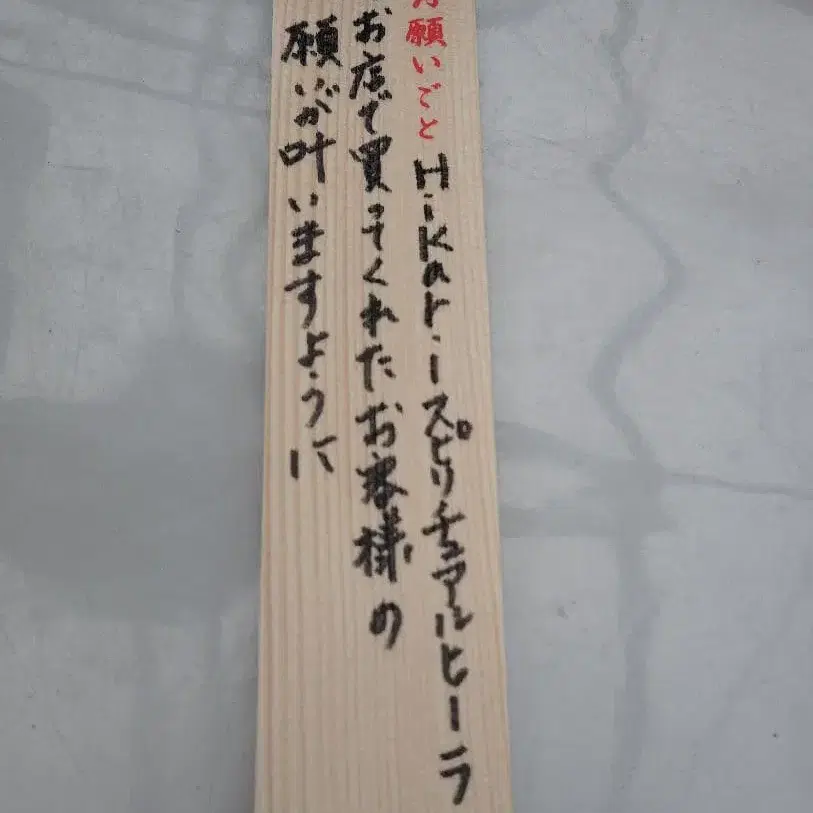 お願いごと
Hikariスピリチュアルヒーラ
お店で買ってくれたお客様の
願いが叶いますように